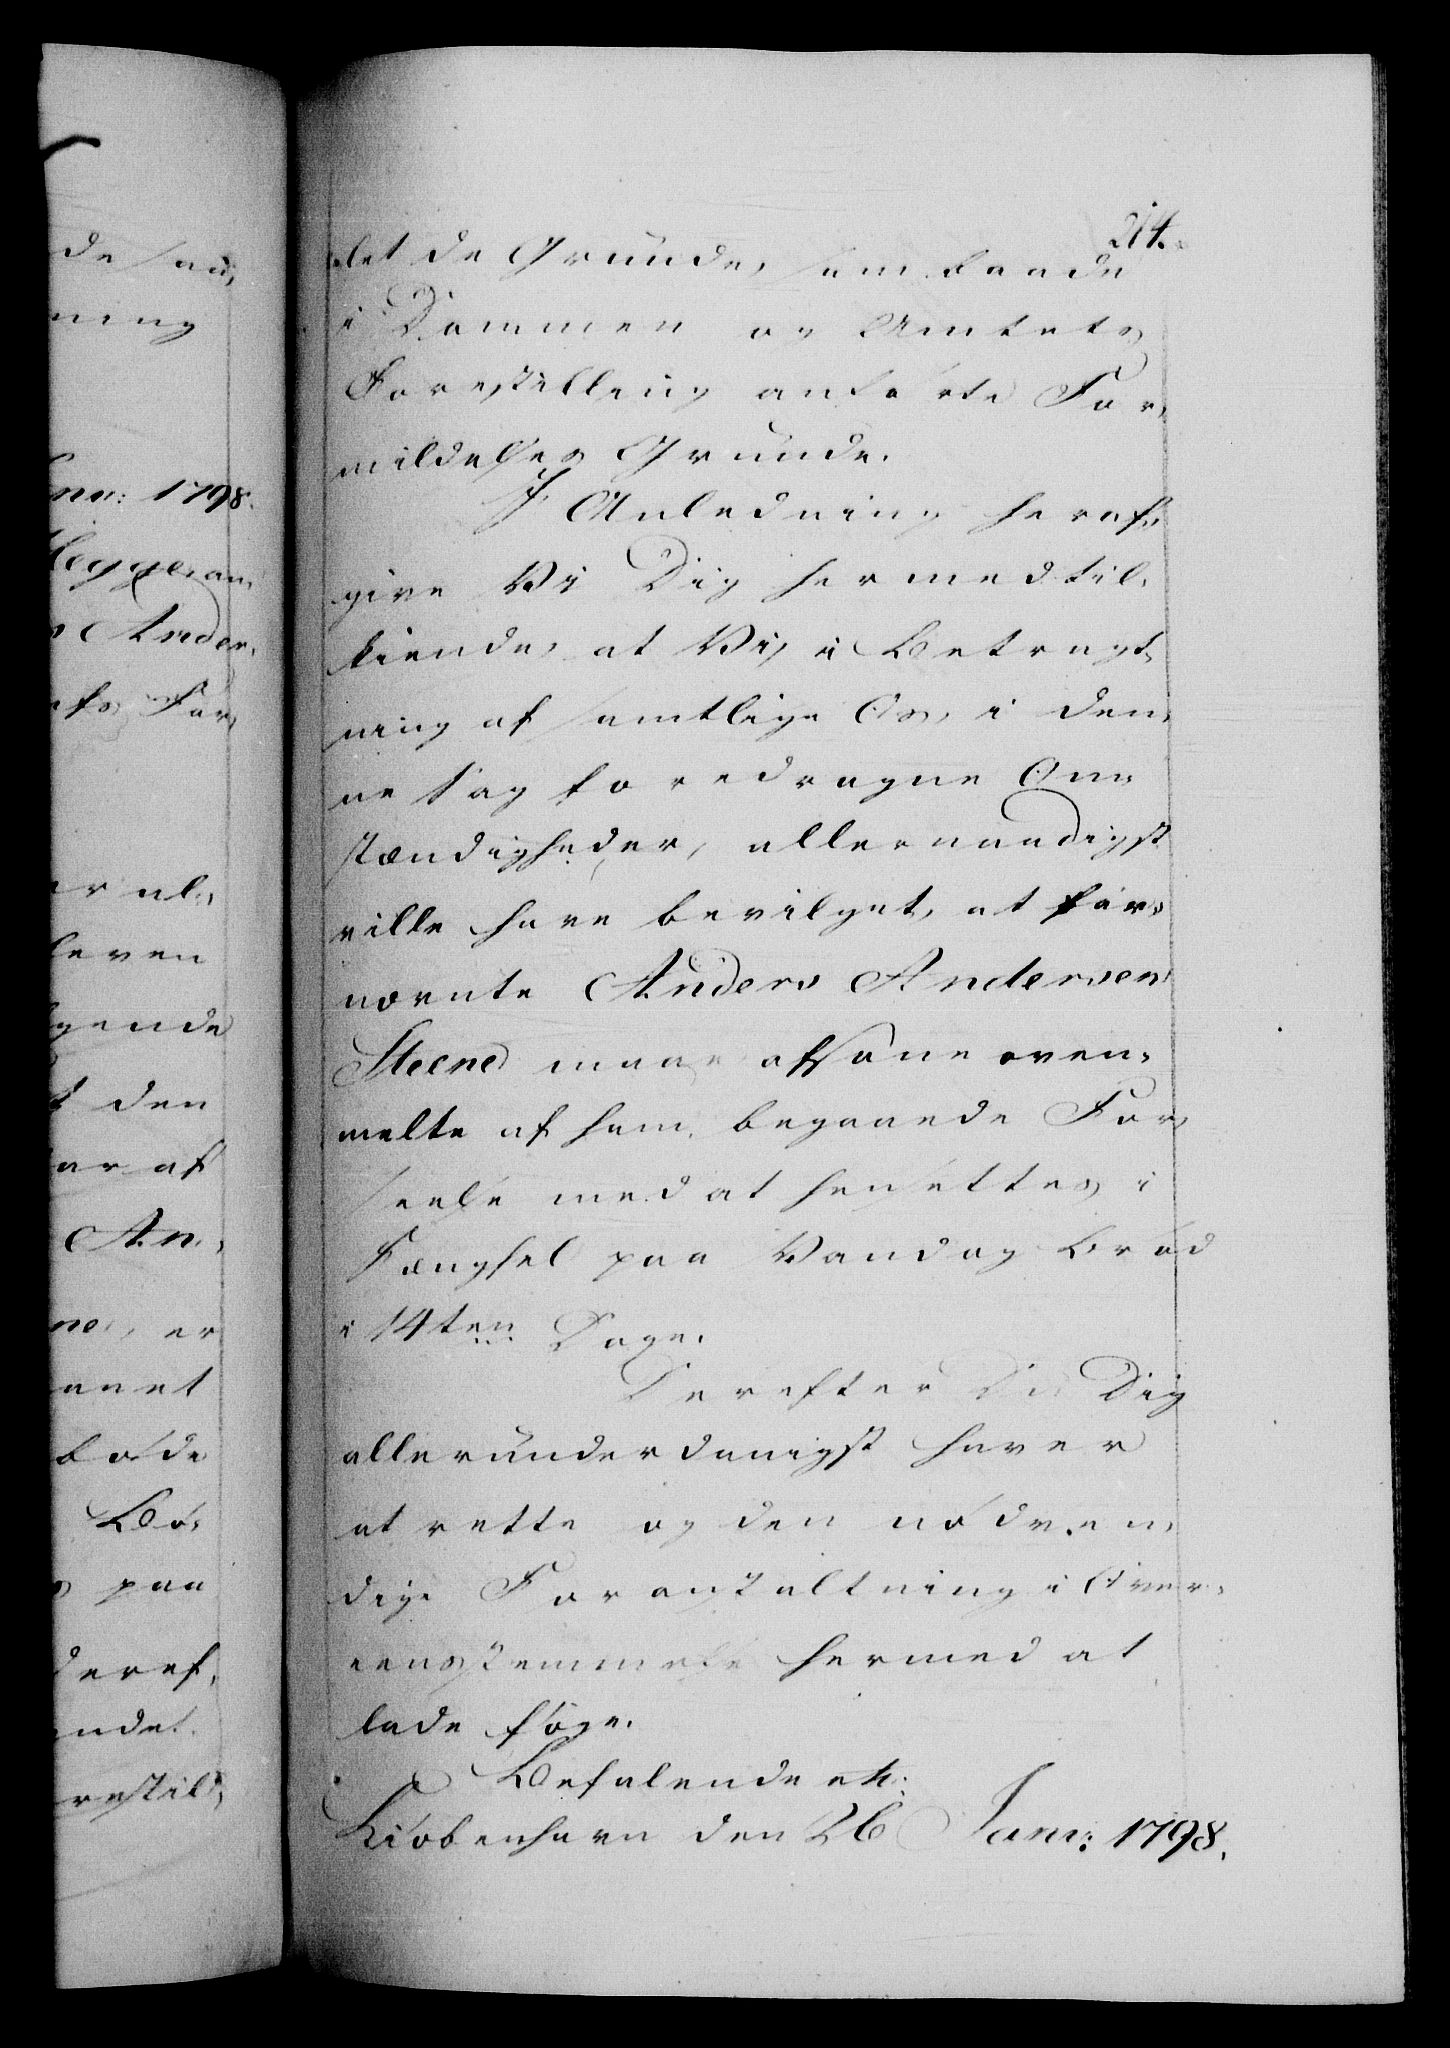 214.
let de Grunde, som baade
i Dommen og Amtets
Forestilling anførte For,
mildelses Grunde.
I Anledning heraf,
give Vi Dig hermed til,
kiende, at Vi, i Betragt,
ning af samtlige Os, i den,
ne Sag foredragne Om,
stændigheder, allernaadigst
ville have bevilget, at for,
nævnte Anders Andersen
Steene maae afsone oven,
melte af ham begaaede For,
seelse med at hensættes i
Fængsel paa Vand og Brød
i 14ten Dage.
Derefter Du Dig
allerunderdanigst haver
at rette og den nødven,
dige Foranstaltning i Over,
eensstemmelse hermed at
lade føye.
Befalende etc:
Kiøbenhavn den 26 Janu: 1798.